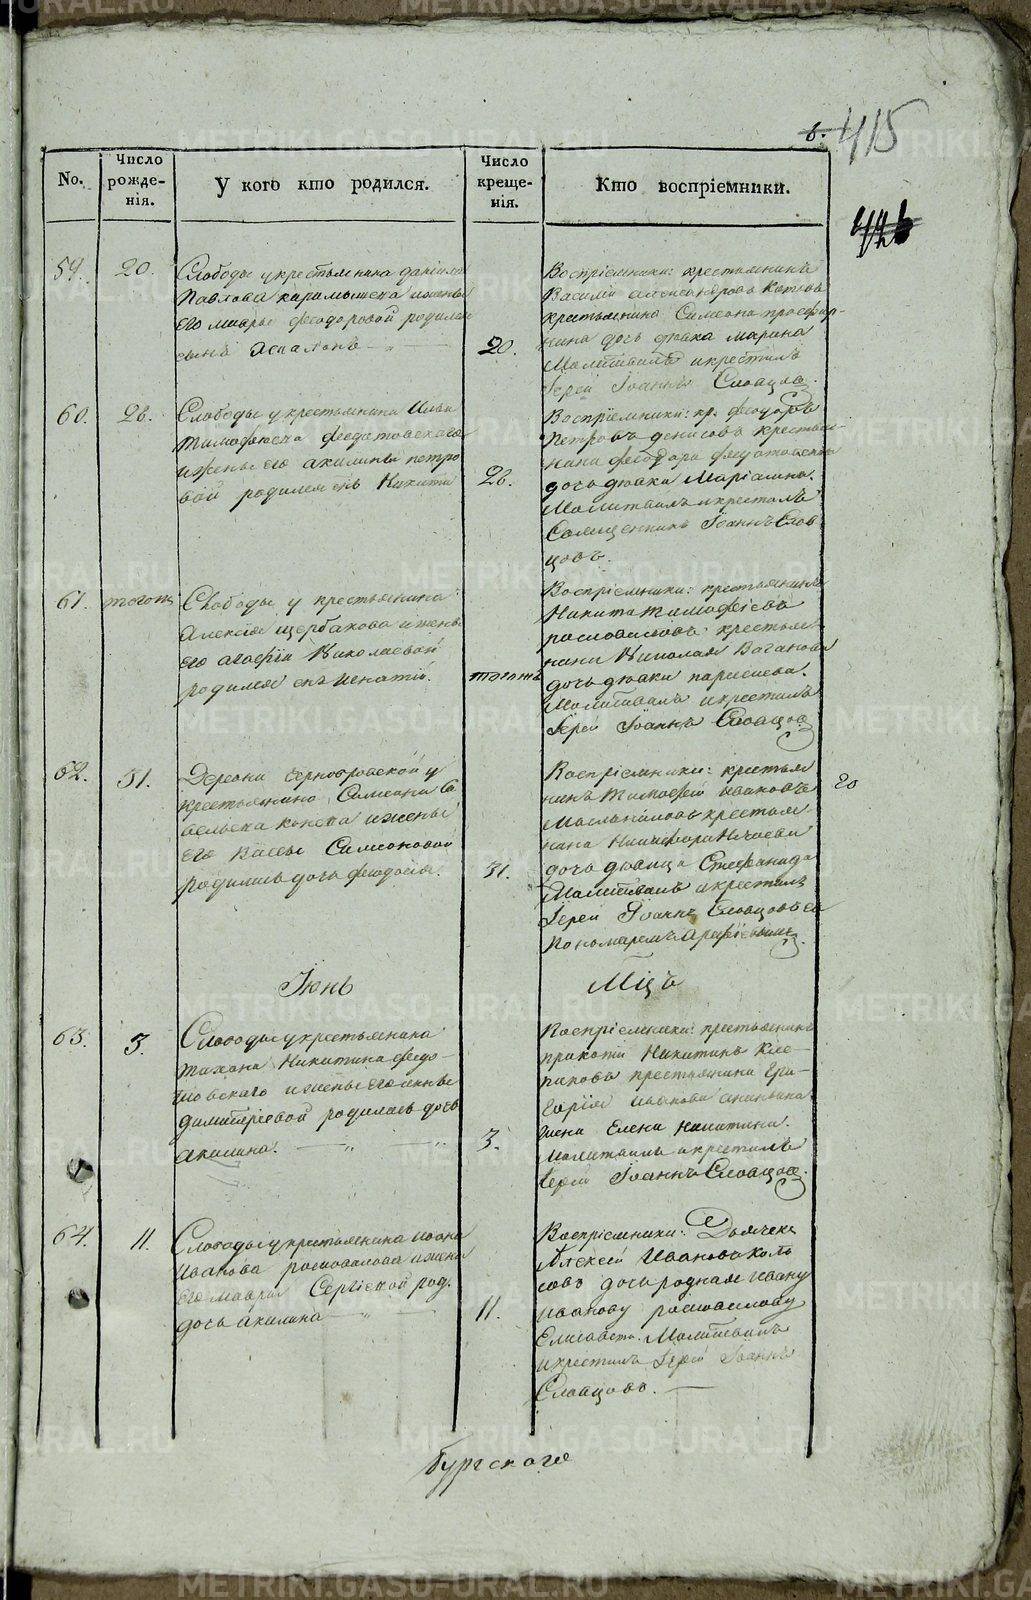 6. 415
426
No.
Число рожде-нія.
У кого кто родился.
Число креще-нія.
Кто воспріемники.
59.
20.
Слободы у крестьянина Даніила
Павлова Карамышева и жены
его Мавры Феодоровой родился
сынъ
20.
Воспріемники: крестьянинъ
Василій Александровъ
крестьянина Симеона
дочь дѣвка Марина
Молитвилъ и крестилъ
Іерей Іоаннъ Словцовъ.
60.
26.
Слободы у крестьянина Ильи
Тимофеева Федотовскаго
и жены его Акилины Петро
вой родился снъ Никита
26.
Воспріемники: кр. Феодоръ
Петровъ Денисовъ крестьян-
нина Феодора Федотовскаго
дочь дѣвка Маріамна.
Молитвилъ и крестилъ
Священникъ Іоаннъ Слов
цовъ.
61.
тогожъ
Слободы у крестьянина
Алексія Щербакова и жены
его Агафіи Николаевой
родился снъ Игнатій.
тогожъ
Воспріемники: крестьянинъ
Никита Тимофеевъ
крестьян
нина Николая Ваганова
дочь дѣвка
Молитвилъ и крестилъ
Іерей Іоаннъ Словцовъ
62.
31.
Деревни у
крестьянина Симеона Са
вельева и жены
его Вассы Симеоновой
родилась дочь Феодосія.
31.
Воспріемники: крестья
нинъ Тимофей Ивановъ
крестьян
нина Никифора Нечаева
дочь дѣвица Стефанида
Молитвилъ и крестилъ
Іерей Іоаннъ Словцовъ съ
Пономаремъ
20
Іюнь
Мцъ
63.
3.
Слободы у крестьянина
Никитина Федо-
товскаго и жены его Анны
Димитріевой родилась дочь
Акилина.
3.
Воспріемники: крестьянинъ
Никитинъ
крестьянина Гри-
горія Иванова
жена Елена Никитина.
Молитвилъ и крестилъ
Іерей Іоаннъ Словцовъ.
64.
11.
Слободы у крестьянина Ивана
Иванова и жены
его Мавры Сергіевой род.
дочь Акилина
11.
Воспріемники: Дьячекъ
Алексей Ивановъ
дочь родная Ивану
Иванову
Елисавета. Молитвилъ
и крестилъ Іерей Іоаннъ
Словцовъ.
бургскаго
METRIKI.GASO-URAL.RU